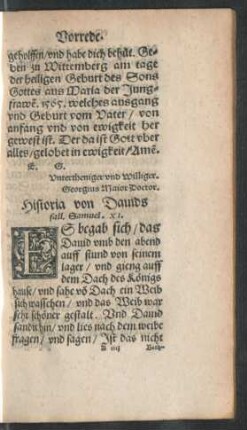 Vorrede.
geholffen/vnd habe dich behüt. Ge-
ben zu Wittemberg am tage
der heiligen Geburt des Sons
Gottes aus Maria der Jung-
frawē. 1565. welches ausgang
vnd Geburt vom Vater / von
anfang vnd von ewigkeit her
gewest ist. Der da ist Gott vber
alles/gelobet in ewigkeit/Amē.
E. G.
Vntertheniger vnd Williger.
Georgius Maior Doctor.
Historia von Dauids
fall. Samuel. XI.
ES begab sich / das
Dauid vmb den abend
auff stund von seinem
lager / vnd gieng auff
dem Dach des Königs
hause/ vnd sahe vō Dach ein Weib
sich wasschen / vnd das Weib war
seht schöner gestalt. Vnd Dauid
sandte hin/ vnd lies nach dem weibe
fragen / vnd sagen / Ist das nicht